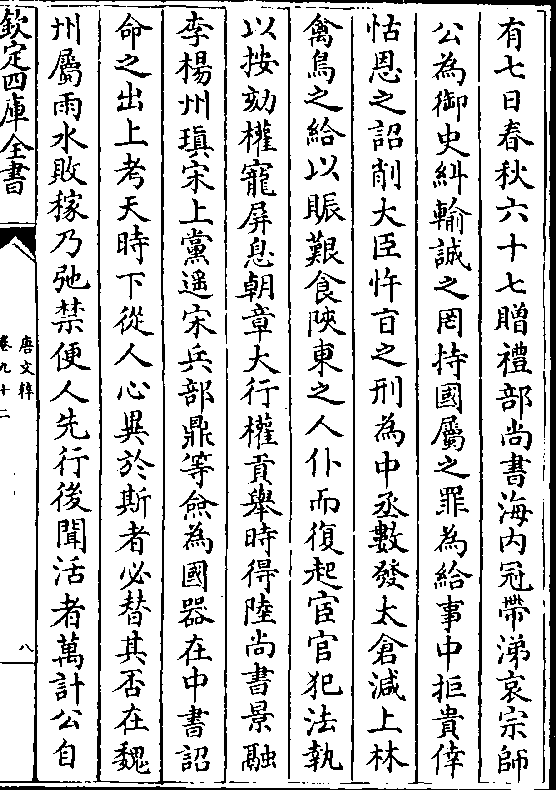 有七日春秋六十七贈禮部尚書海内冠帶涕哀宗師
公為御史糾輸誠之罔持國屬之罪為給事中拒貴倖
怙恩之詔削大臣忤百之刑為中丞數發太倉減上林
禽鳥之給以賑艱食陜東之人仆而復起宦官犯法執
以按劾權寵屏息朝章大行權貢舉時得陸尚書景融
李楊州瑱宋上黨遥宋兵部鼎等僉為國器在中書詔
命之出上考天時下從人心異於斯者必替其否在魏
州屬雨水敗稼乃弛禁便人先行後聞活者萬計公自
欽定四庫全書
唐文粹
卷九十二
八